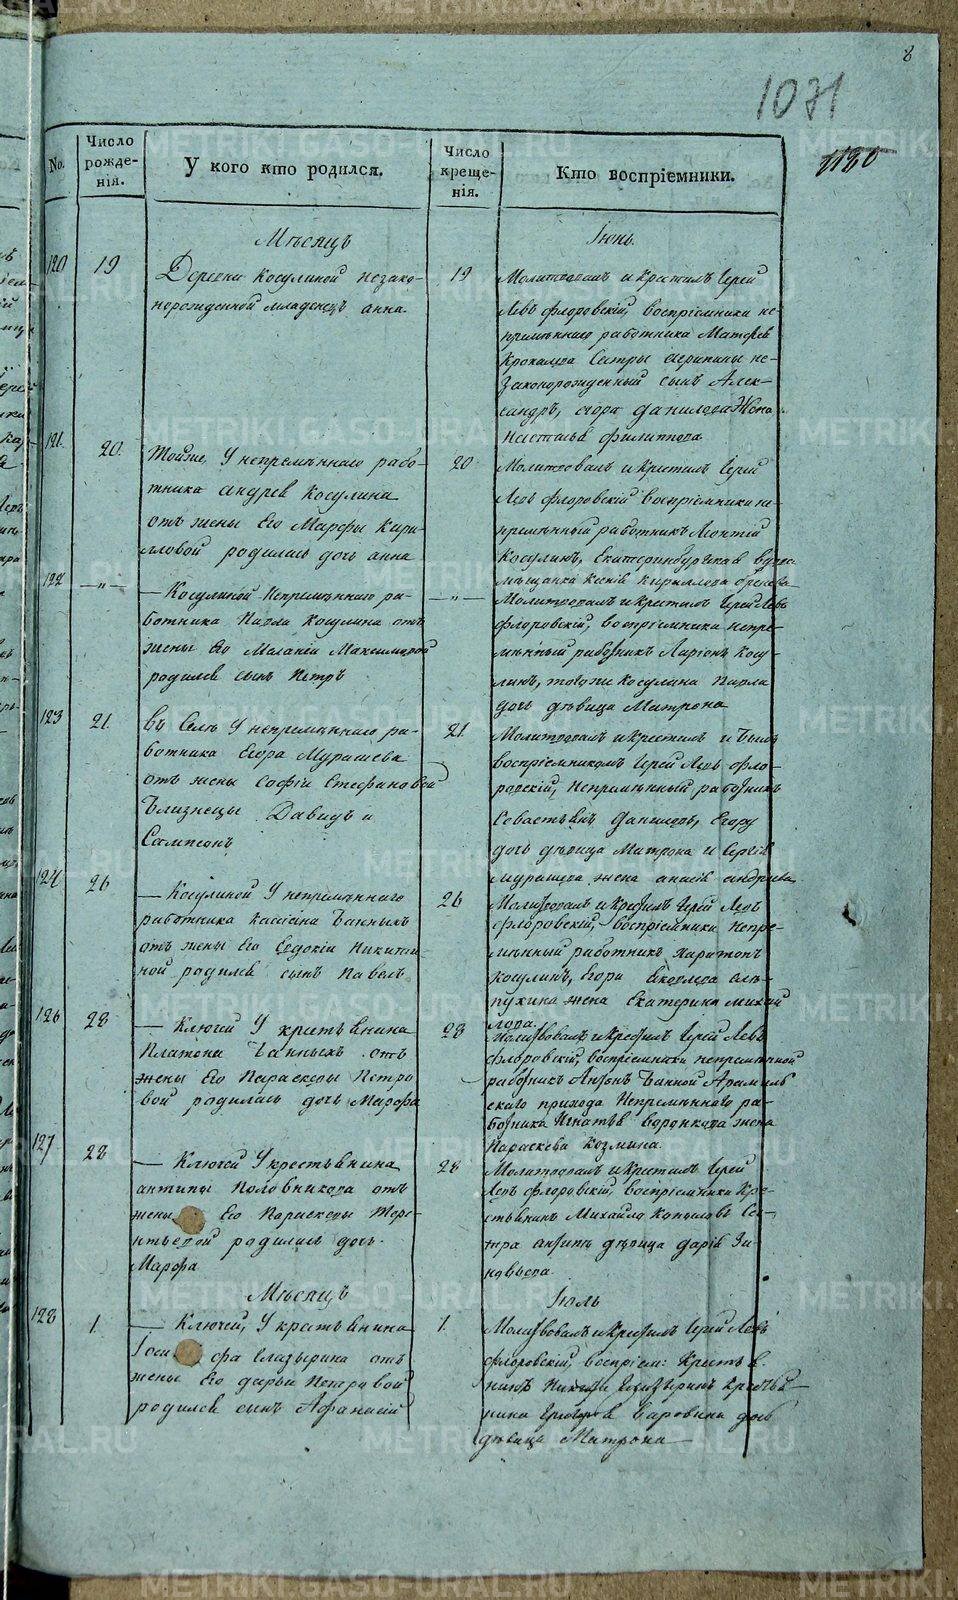 8
1071
1180
No.
Число рожде-нія.
У кого кто родился.
Число креще-нія.
Кто воспріемники.
Мѣсяцъ
Іюнь.
120
19
Деревни Косулиной незако-
норожденной младенецъ анна.
19
Молитвовалъ и крестилъ Іерей
Левъ флоровскій, воспріемники не-
премѣннаго работника Матвея
Сестры не-
законорожденный сынъ Алек-
сандръ, данилова Жена
Наталья филипова
121.
20.
Тойже, У непремѣннаго рабо-
тника андрея Косулина
отъ жены Его Марфы Кири-
лловой родилась дочь анна
20
Молитвовалъ и крестилъ Іерей
Левъ флоровскій воспріемники не-
премѣнный работникъ Леонтій
Косулинъ, Екатеринбургская
мѣщанка Ксенія Кирилова
122
—"—
— Косулиной Непремѣннаго ра-
ботника Павла Косулина отъ
жены Его Маланіи Максимовой
родился сынъ Петръ
—"—
Молитвовалъ и крестилъ Іерей Левъ
флоровскій, воспріемники непре-
мѣнный работникъ Ларіонъ Косу-
линъ, тогоже Косулина Павла
дочь дѣвица Матрона
123
21.
въ Селѣ У непремѣннаго ра-
ботника Егора Мурашева
отъ жены Софіи Стефановой
Близнецы Давидъ и
Сампсонъ
21.
Молитвовалъ и крестилъ и былъ
воспріемникомъ Іерей Левъ фло-
ровскій, Непремѣнный работникъ
Севастьянъ Даниловъ, Егору
дочь дѣвица Матрона и Сергія
мурашева жена анисія андреева
124
26
— Косулиной У непремѣннаго
работника Касіяна Банныхъ
отъ жены Его Евдокіи Никити-
ной родился сынъ Павелъ
26
Молитвовалъ и Крестилъ Іерей Левъ
флоровскій, воспріемники Непре-
мѣнный работникъ Харитонъ
Косулинъ, Егора Яковлева
жена Екатерина михай
лова.
126
28
— Ключей У крестьянина
Платона Банныхъ отъ
жены Его Параскевы Петро
вой родилась дочь Марфа
28
Молитвовалъ и Крестилъ Іерей Левъ
флоровскій, воспріемники непремѣнной
работникъ Антонъ Банной Арамиль
скаго прихода Непремѣннаго ра-
ботника Игнатья Воронкова жена
Параскева Козмина.
127
28
— Ключей У крестьянина
антипы Половникова отъ
жены Его Параскевы Тере-
нтьевой родилась дочь
Марфа
28
Молитвовалъ и крестилъ Іерей
Левъ флоровскій, воспріемники Кре-
стьянинъ Михайло Копыловъ Се-
тра дѣвица дарія Зи-
новьева.
Мѣсяцъ
Іюль
128
1.
— Ключей, У крестьянина
Іоси фа Глазырина отъ
жены Его дарьи Петровой
родился сынъ Афанасій
1.
Молитвовалъ и Крестилъ Іерей Левъ
флоровскій, воспріем: Крестья
нинъ Глазыринъ Крестья
нина дочь
дѣвица Матрона
METRIKI.GASO-URAL.RU